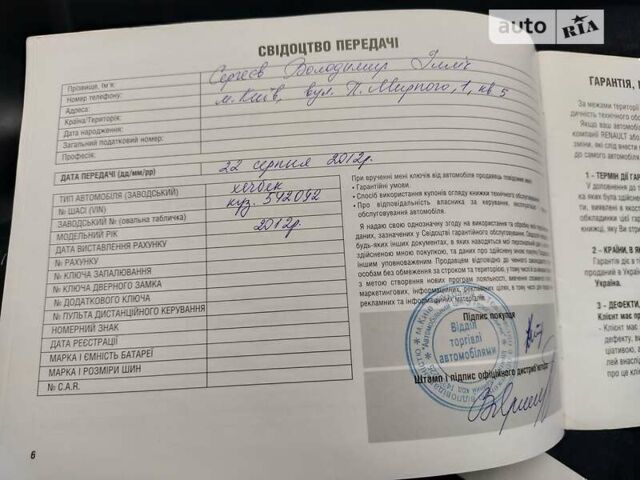 auto RIA
СВІДОЦТВО ПЕРЕДАЧІ
Прізвище, Ім'я: Сергеєв Володимир Ілліч
Номер телефону:
Адреса: м. Київ, вул. П. Мирного, 1, кв 5
Країна/Територія:
Дата народження:
Загальний податковий номер:
Професія:
ДАТА ПЕРЕДАЧІ (дд/мм/рр) 22 серпня 2012р.
ТИП АВТОМОБІЛЯ (ЗАВОДСЬКИЙ) хечбек
№ ШАСІ (VIN) куз. 542092
ЗАВОДСЬКИЙ № (овальна табличка)
МОДЕЛЬНИЙ РІК 2012р.
ДАТА ВИСТАВЛЕННЯ РАХУНКУ
№ РАХУНКУ
№ КЛЮЧА ЗАПАЛЮВАННЯ
№ КЛЮЧА ДВЕРНОГО ЗАМКА
№ ДОДАТКОВОГО КЛЮЧА
№ ПУЛЬТА ДИСТАНЦІЙНОГО КЕРУВАННЯ
НОМЕРНИЙ ЗНАК
ДАТА РЕЄСТРАЦІЇ
МАРКА І ЄМНІСТЬ БАТАРЕЇ
МАРКА І РОЗМІРИ ШИН
№ C.A.R.
При врученні мені ключів від автомобіля продавець повідомив мені:
• Гарантійні умови.
• Спосіб використання купонів огляду книжки технічного обслуговування
• Про відповідальність власника за керування, експлуатацію
обслуговування автомобіля.
Я надаю свою однозначну згоду на використання та обробку моїх
даних, зазначених у Свідоцтві гарантійного обслуговування,
будь-яких інших документах, в яких наводяться мої персональні дані
здійсненою мною покупкою, та даних про здійснену мною покупку.
іншим уповноваженим Продавцем відповідно до чинного законодавства
особам без обмеження за строком та територією, у тому числі
з метою створення нових програм лояльності, вивчення
маркетингових, інформаційних, рекламних цілях, в тому числі для
рекламних та інформаційних матеріалів.
Підпис покупця
Відділ
торгівлі
автомобілями
Штамп і підпис офіційного дистриб'ютора
6
ГАРАНТІЯ,
За межами території
дичність технічного обс
Якщо ваш автомобіль
компанії RENAULT або
зміни, які слід внести
до самого автомобіля.
1 - ТЕРМІН ДІЇ ГА
У доповнення до
тих яка була здійснена
ти, виявлені в якості
обкладинки цієї гара
книжці, яку Ви отри
2 - КРАЇНИ, В Я
Гарантія діє в ти
проданий в Україні
Україна.
3 - ДЕФЕКТИ,
Клієнт має пр
Клієнт
дефекту, ви
ціативою, а
леї внаслід
про це клі